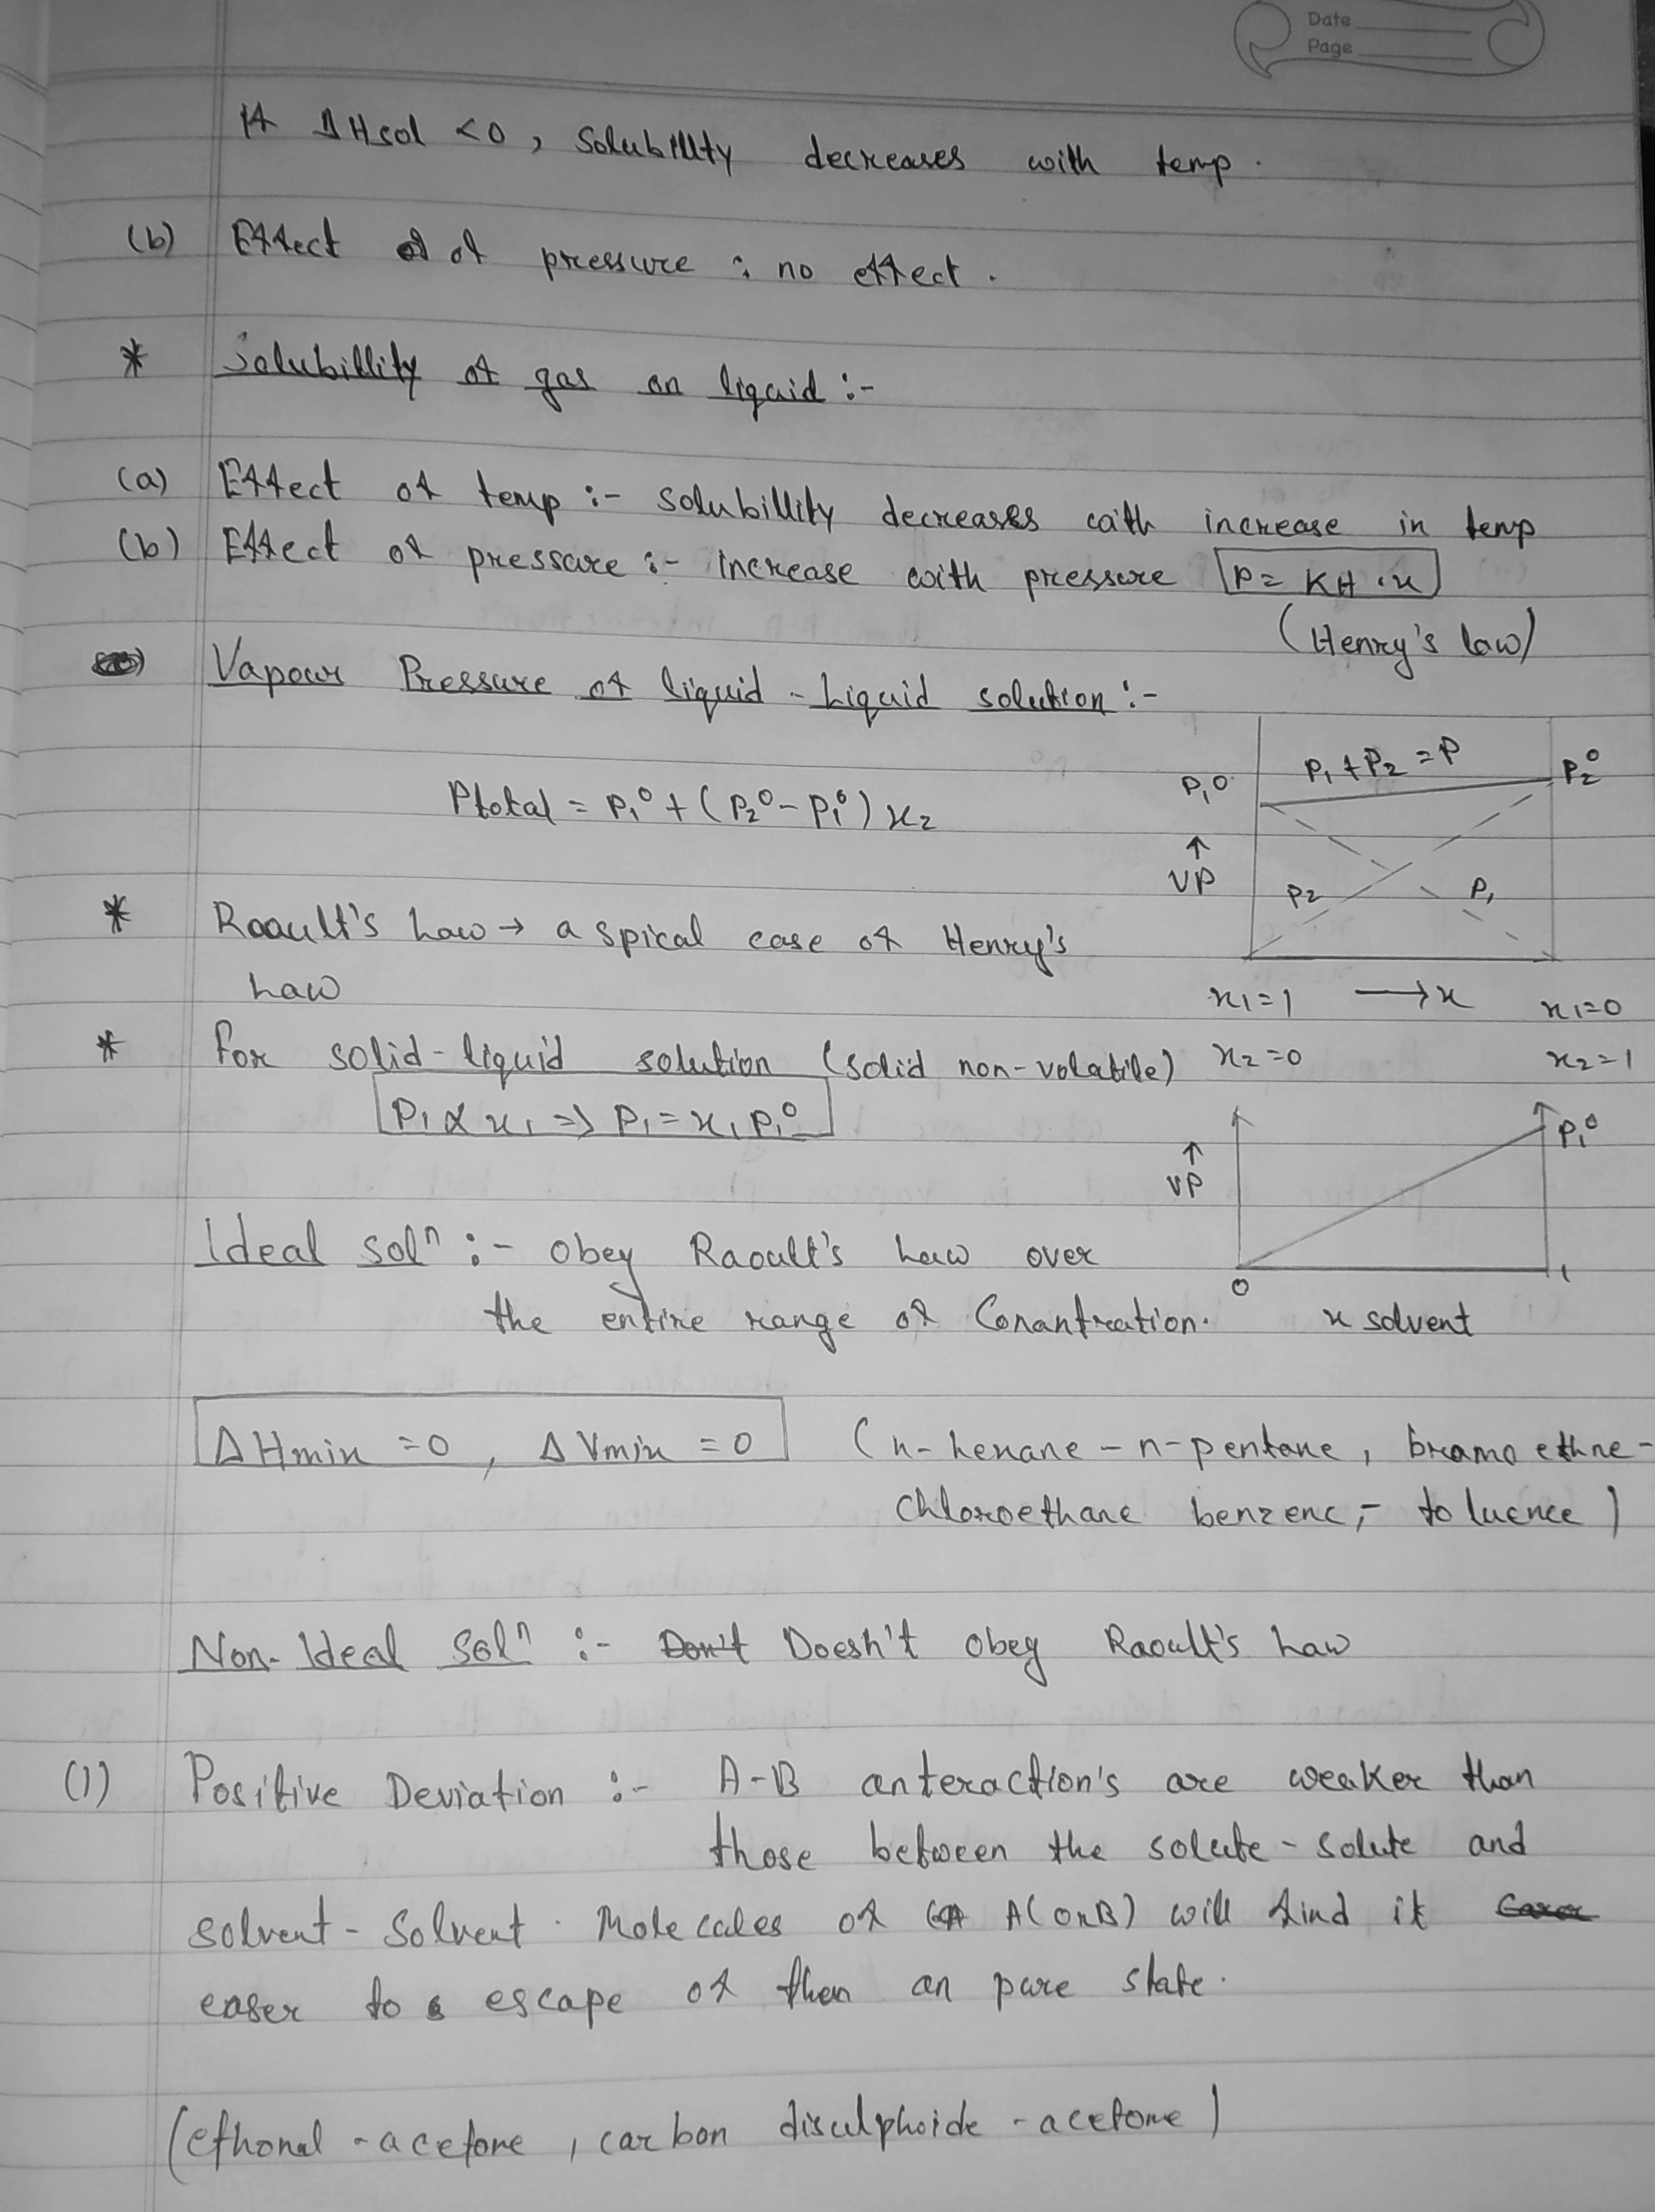 Date
Page
If ΔHsol <0, Solubillty decreases with temp.
(b) Effect of pressure : no effect.
* Solubillity of gas on liquid :-
(a) Effect of temp :- solubillity decreases with increase in temp
(b) Effect of pressure :- increase with pressure P = KH . x
(Henry's law)
Vapour Pressure of liquid - Liquid solution :-
P1+P2 = P
P1⁰
P2⁰
Ptotal = P1⁰ + (P2⁰ - P1⁰) x2
↑
VP
P2
P1
* Raoault's Law → a spical case of Henry's
Law
x1=1 → x x1=0
* For solid-liquid solution (solid non-volatile)
x2=0 x2=1
P1 ∝ x1 => P1 = x1 P1⁰
P1⁰
↑
VP
Ideal solⁿ :- obey Raoult's Law over
0 1
the entire range of Conantration.
x solvent
ΔHmix =0, ΔVmix =0 (n-hexane - n-pentane, bromo ethne-
chloroethane benzene,- toluence)
Non-Ideal Solⁿ :- Don't Doesn't obey Raoult's Law
(1) Positive Deviation :- A-B anteraction's are weaker than
those between the solute - solute and
solvent - Solvent. Molecules of A(orB) will find it
easer to escape of then an pure state.
(ethonal - acetone, carbon disulphoide - acetone)